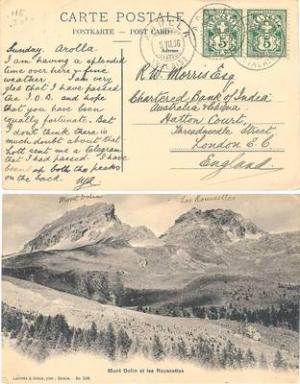 CARTE POSTALE
POSTKARTE — POST CARD
Sunday. Arolla
I am having a splendid
time over here – fine
weather. I am very
glad that I have passed
the I.O.B. and hope
that you have been
equally fortunate. But
I dont think there is
much doubt about that
Holt sent me a telegram
that I had passed. I have
been up both the peaks
on the back.
R. W. Morris Esq
Chartered Bank of India
Australia & China
Hatton Court,
Threadneedle Street
London E.C.
England
5
5
Mont Dolin
Les Roussettes
Mont Dolin et les Roussettes